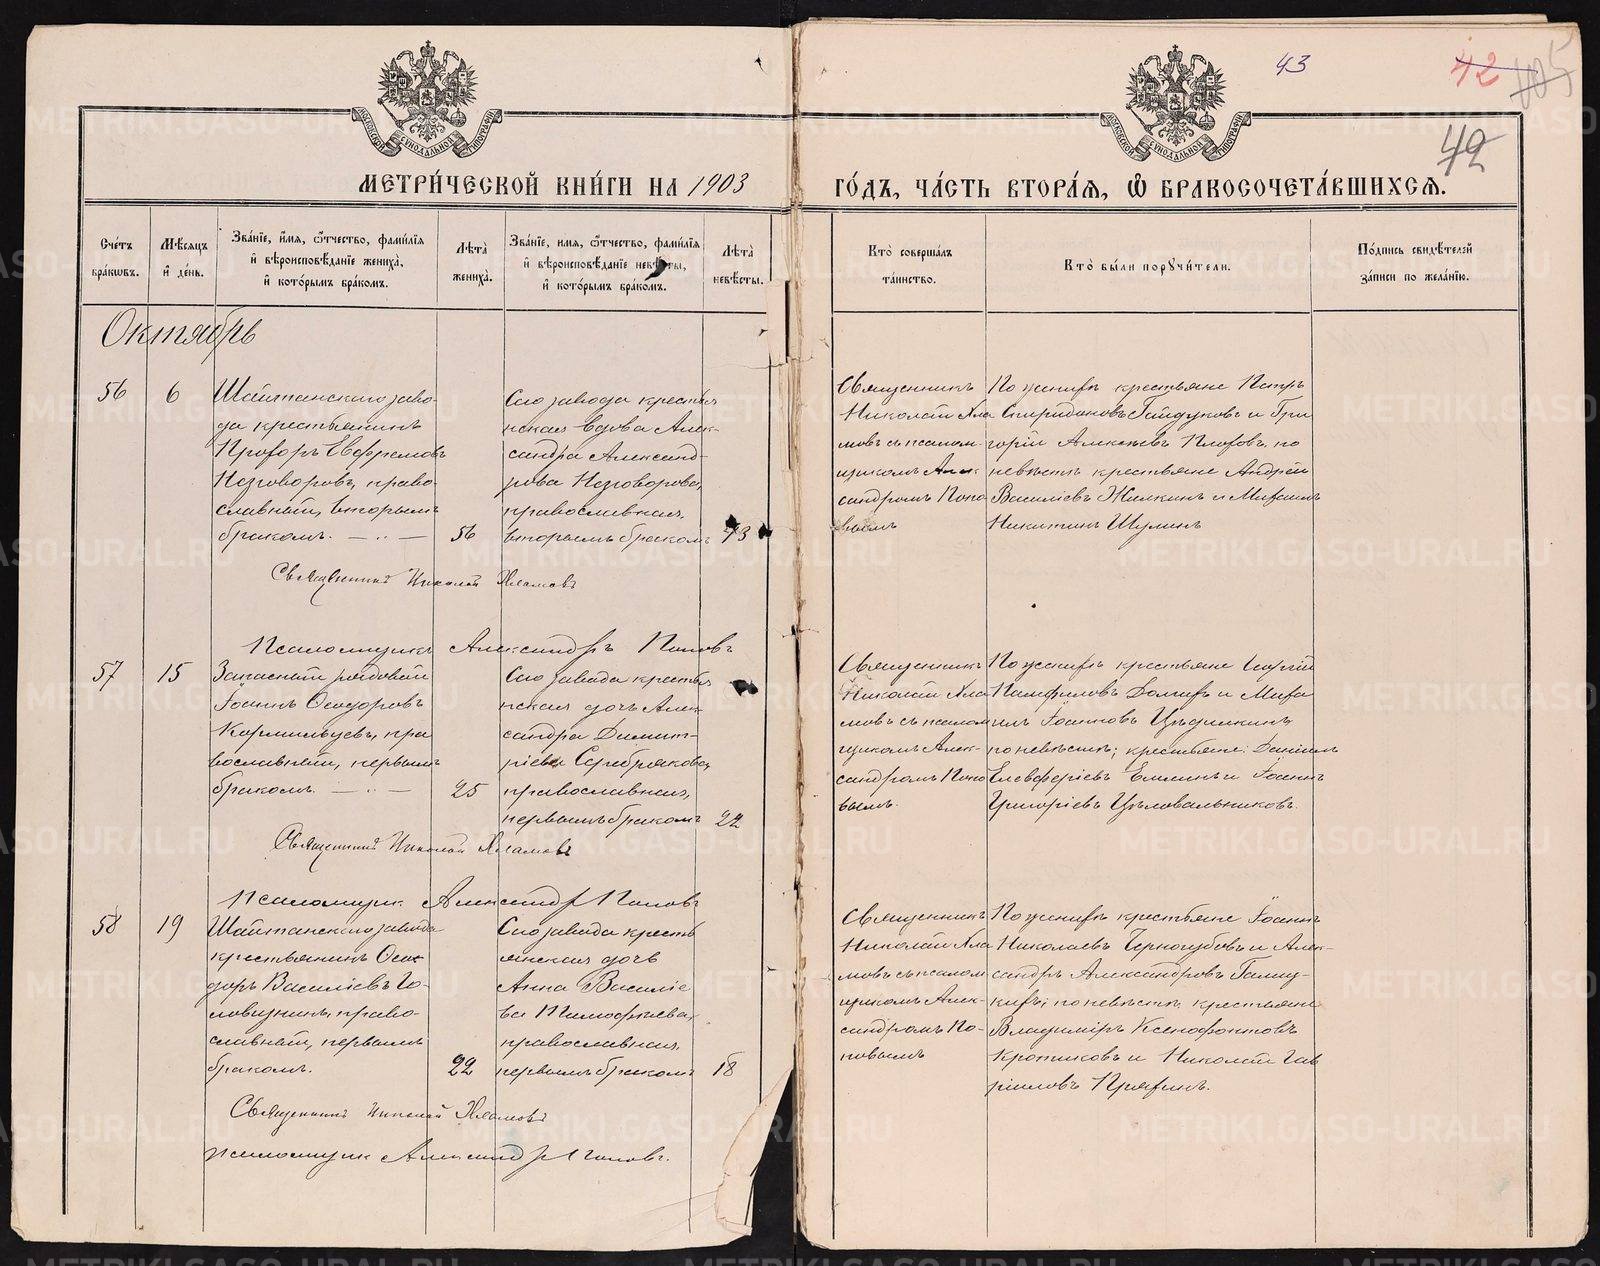 43
42
105
42
МЕТРИЧЕСКОЙ КНИГИ НА 1903
ГОДЪ, ЧАСТЬ ВТОРАЯ, Ѿ БРАКОСОЧЕТАВШИХСЯ.
Счетъ браковъ.
Мѣсяцъ и день.
Званіе, имя, отчество, фамилія и вѣроисповѣданіе жениха, и которымъ бракомъ.
Лѣта жениха.
Званіе, имя, отчество, фамилія и вѣроисповѣданіе невѣсты, и которымъ бракомъ.
Лѣта невѣсты.
Кто совершалъ таинство.
Кто были поручители.
Подпись свидѣтелей записи по желанію.
Октябрь
56
6
Шайтанскаго заво-
да крестьянинъ
Прохоръ Евфремовъ
Незговоровъ, право-
славный, вторымъ
бракомъ.
56
Сего завода крестья
нская вдова Алек-
сандра Александ-
рова Незговорова,
православная,
вторымъ бракомъ
43
Священникъ
Николай Хла
мовъ съ псалом-
щикомъ Алек
сандромъ Попо
вымъ
По женихѣ крестьяне Петръ
Спиридоновъ Гайдуковъ и Гри
горій Алексѣевъ Плоховъ, по
невѣстѣ крестьяне Андрей
Василіевъ Жилкинъ и Михаилъ
Никитинъ Шулинъ
Священникъ Николай Хламовъ
Псаломщикъ Александръ Поповъ
57
15
Запасный рядовой
Іоаннъ Ѳеодоровъ
Кормильцевъ, пра
вославный, первымъ
бракомъ.
25
Сего завода крестья
нская дочь Алек-
сандра Димит-
ріева Серебрякова,
православная,
первымъ бракомъ
22
Священникъ
Николай Хла
мовъ съ псалом
щикомъ Алек-
сандромъ Попо
вымъ.
По женихѣ крестьяне Георгій
Памфиловъ и Миха
илъ Іоанновъ
по невѣстѣ; крестьяне: Даніилъ
Елевферіевъ Емлинъ и Іоаннъ
Григоріевъ Цѣловальниковъ.
Священникъ Николай Хламовъ
Псаломщикъ Александръ Поповъ
58
19
Шайтанскаго завода
крестьянинъ Ѳео
доръ Василіевъ Го-
ловизнинъ, право-
славный, первымъ
бракомъ.
22
Сего завода кресть
янская дочь
Анна Василіе
ва Тимофѣева,
православная,
первымъ бракомъ
18
Священникъ
Николай Хла
мовъ съ псалом
щикомъ Алек-
сандромъ По-
повымъ
По женихѣ крестьяне Іоаннъ
Николаевъ Черногубовъ и Алек-
сандръ Александровъ
по невѣстѣ, крестьяне
Владиміръ Ксенофонтовъ
Кротиковъ и Николай Гав
ріиловъ Пряхинъ.
Священникъ Николай Хламовъ
псаломщикъ Александръ Поповъ.